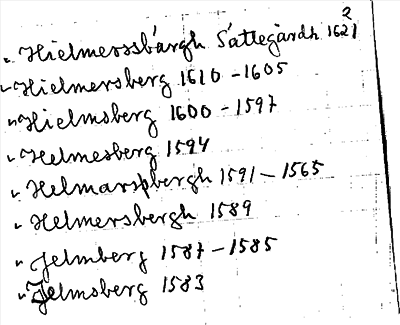 2
" Hielmerssbárgh Sáttegårdh 1621
" Hielmersberg 1610-1605
" Hielmsberg 1600-1597
" Helmesberg 1594
" Helmarspbergh 1591-1565
" Helmersbergh 1589
" Jelmberg 1587-1585
" Jelmsberg 1583